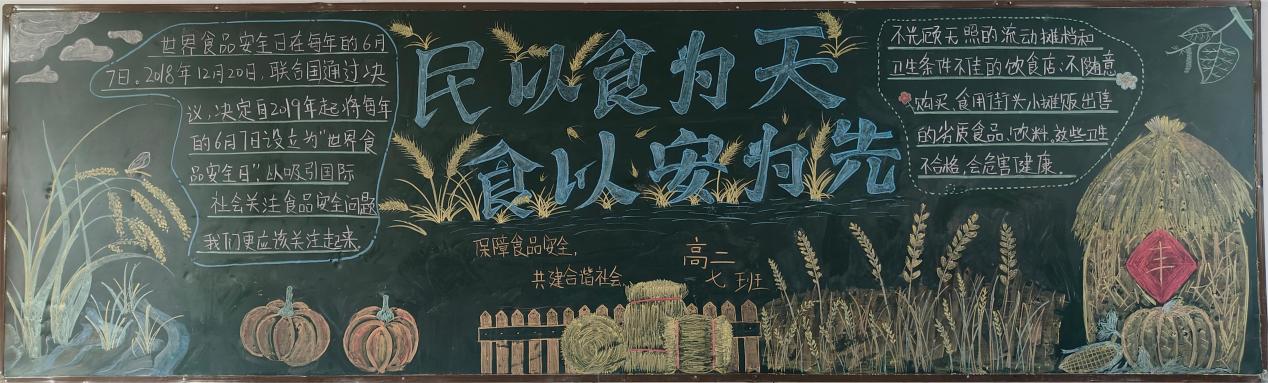 民以食为天
食以安为先
世界食品安全日在每年的6月
7日。2018年12月20日，联合国通过决
议，决定自2019年起将每年
的6月7日设立为“世界食
品安全日”，以吸引国际
社会关注食品安全问题
我们更应该关注起来.
不光顾无照的流动摊档和
卫生条件不佳的饮食店；不随意
购买、食用街头小摊贩出售
的劣质食品、饮料，这些卫生
不合格，会危害健康.
保障食品安全，
共建合谐社会
高二
七班
丰